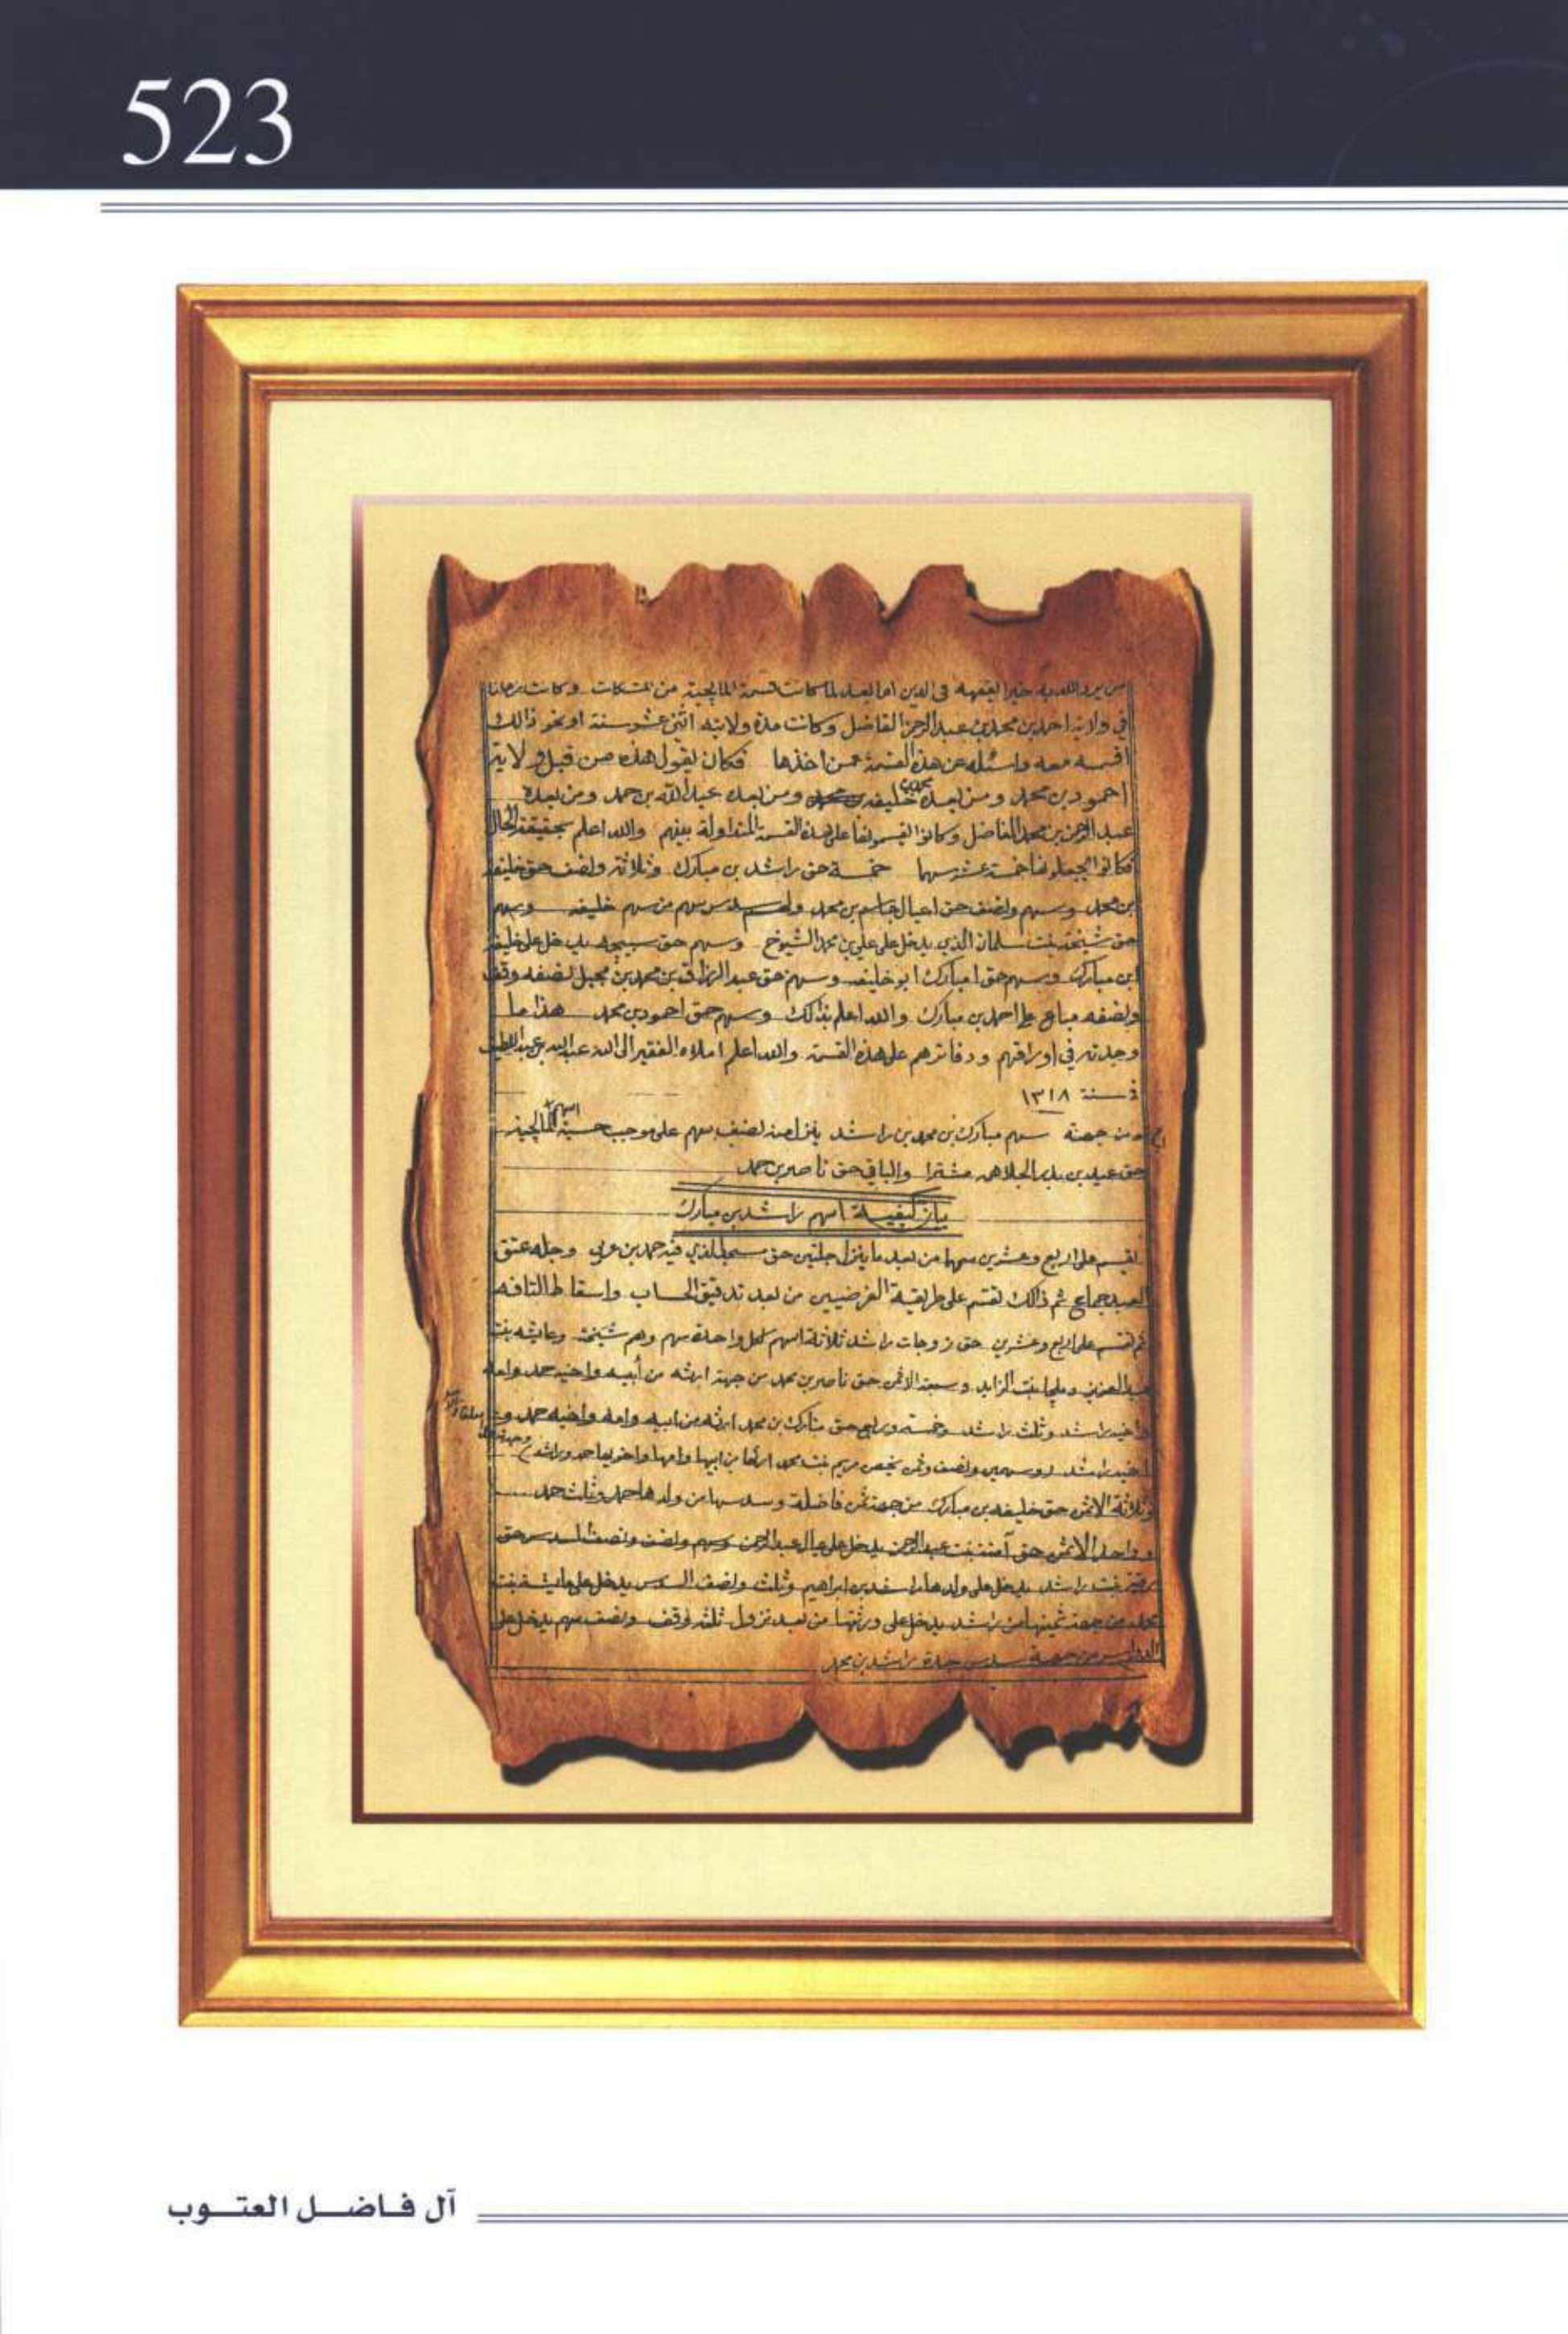 523
من يرد الله به خيرا يفقهه في الدين اما بعد لما كانت قسمة المالحية من وكانت
في ولاية احمد بن محمد بن عبدالرحمن الفاضل وكانت مدة ولايته اثنى عشر سنة او نحو ذالك
اقسمه معه واسئله عن هذه القسمة عمن اخذها فكان يقول هذه من قبل ولاية
احمود بن محمد ومن بعده خليفه بن محمد ومن بعده عبدالله بن حمد ومن بعده
عبدالرحمن بن محمد الفاضل وكانوا يقسمونها على هذه القسمة المتداولة بينهم والله اعلم بحقيقة الحال
فكانوا يجعلونها خمسة عشر سهما خمسة حق راشد بن مبارك وثلاثة ونصف حق خليفه
بن محمد وسهم ونصف حق اعيال جاسم بن محمد سدس سهم من سهم خليفه وسهم
حق شيخة بنت سلمان الذي يدخل على علي بن محمد الشيوخ وسهم حق يدخل على خليفه
ابن مبارك وسهم حق امبارك ابو خليفه وسهم حق عبدالرزاق بن محمد بن محبل نصفه وقف
ونصفه مباع على احمد بن مبارك والله اعلم بذالك وسهم حق احمود بن محمد هذا ما
وجدته في اوراقهم ودفاترهم على هذه القسمة والله اعلم املاه الفقير الى الله عبدالله بن عبداللطيف
في سنة ١٣١٨
من جهة سهم مبارك بن محمد بن راشد ينزل منه نصف سهم على موجب اسهم المالحية
حق عبيد بن بدر الجلاهمه مشترا والباقي حق ناصر بن حمد
بيان كيفية اسهم راشد بن مبارك
يقسم على اربع وعشرين سهما من بعد ما ينزل حق الذي فيه حمد بن عربي عتق
العبيد ثم ذالك تقسم على طريقة الفرضيين من بعد تدقيق الحساب واسقاط التافه
ثم تقسم على اربع وعشرين حق زوجات راشد ثلاثة اسهم لكل واحدة سهم وهم شيخة وعايشه بنت
عبدالعزيز بنت الزايد وسبعة الاثمن حق ناصر بن محمد من جهة ارثه من أبيه واخيه حمد وامه
واخيه راشد وثلث راشد وخمسة وربع حق مبارك بن محمد ارثه من ابيه وامه واخيه حمد
اخيه راشد وسهمين ونصف وثمن يخص مريم بنت محمد ارثها من ابيها وامها واخويها حمد وراشد
وثلاثة الاثمن حق خليفه بن مبارك من جهة ثمن فاضلة وسدسها من ولدها حمد وثلث حمد
وواحد الاثمن حق آمنه بنت عبدالرحمن يدخل على عيال عبدالرحمن وسهم ونصف ونصف السدس حق
رقية بنت راشد يدخل على ولدها راشد بن ابراهيم وثلث ونصف السدس يدخل على عايشه بنت
محمد من جهة ثمينها من راشد يدخل على ورثتها من بعد نزول ثلثه لوقف ونصف سهم يدخل على
من جهة سدس جدة راشد بن محمد
آل فاضل العتوب